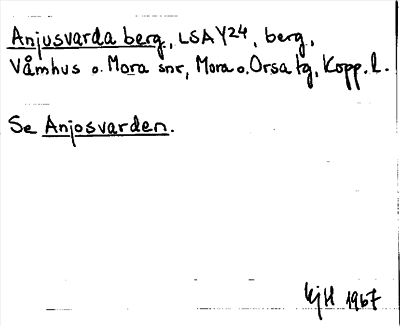 Anjusvarda berg, LSA Y24, berg,
Våmhus o. Mora snr, Mora o. Orsa tg, Kopp. l.
Se Anjosvarden.
KjH 1967